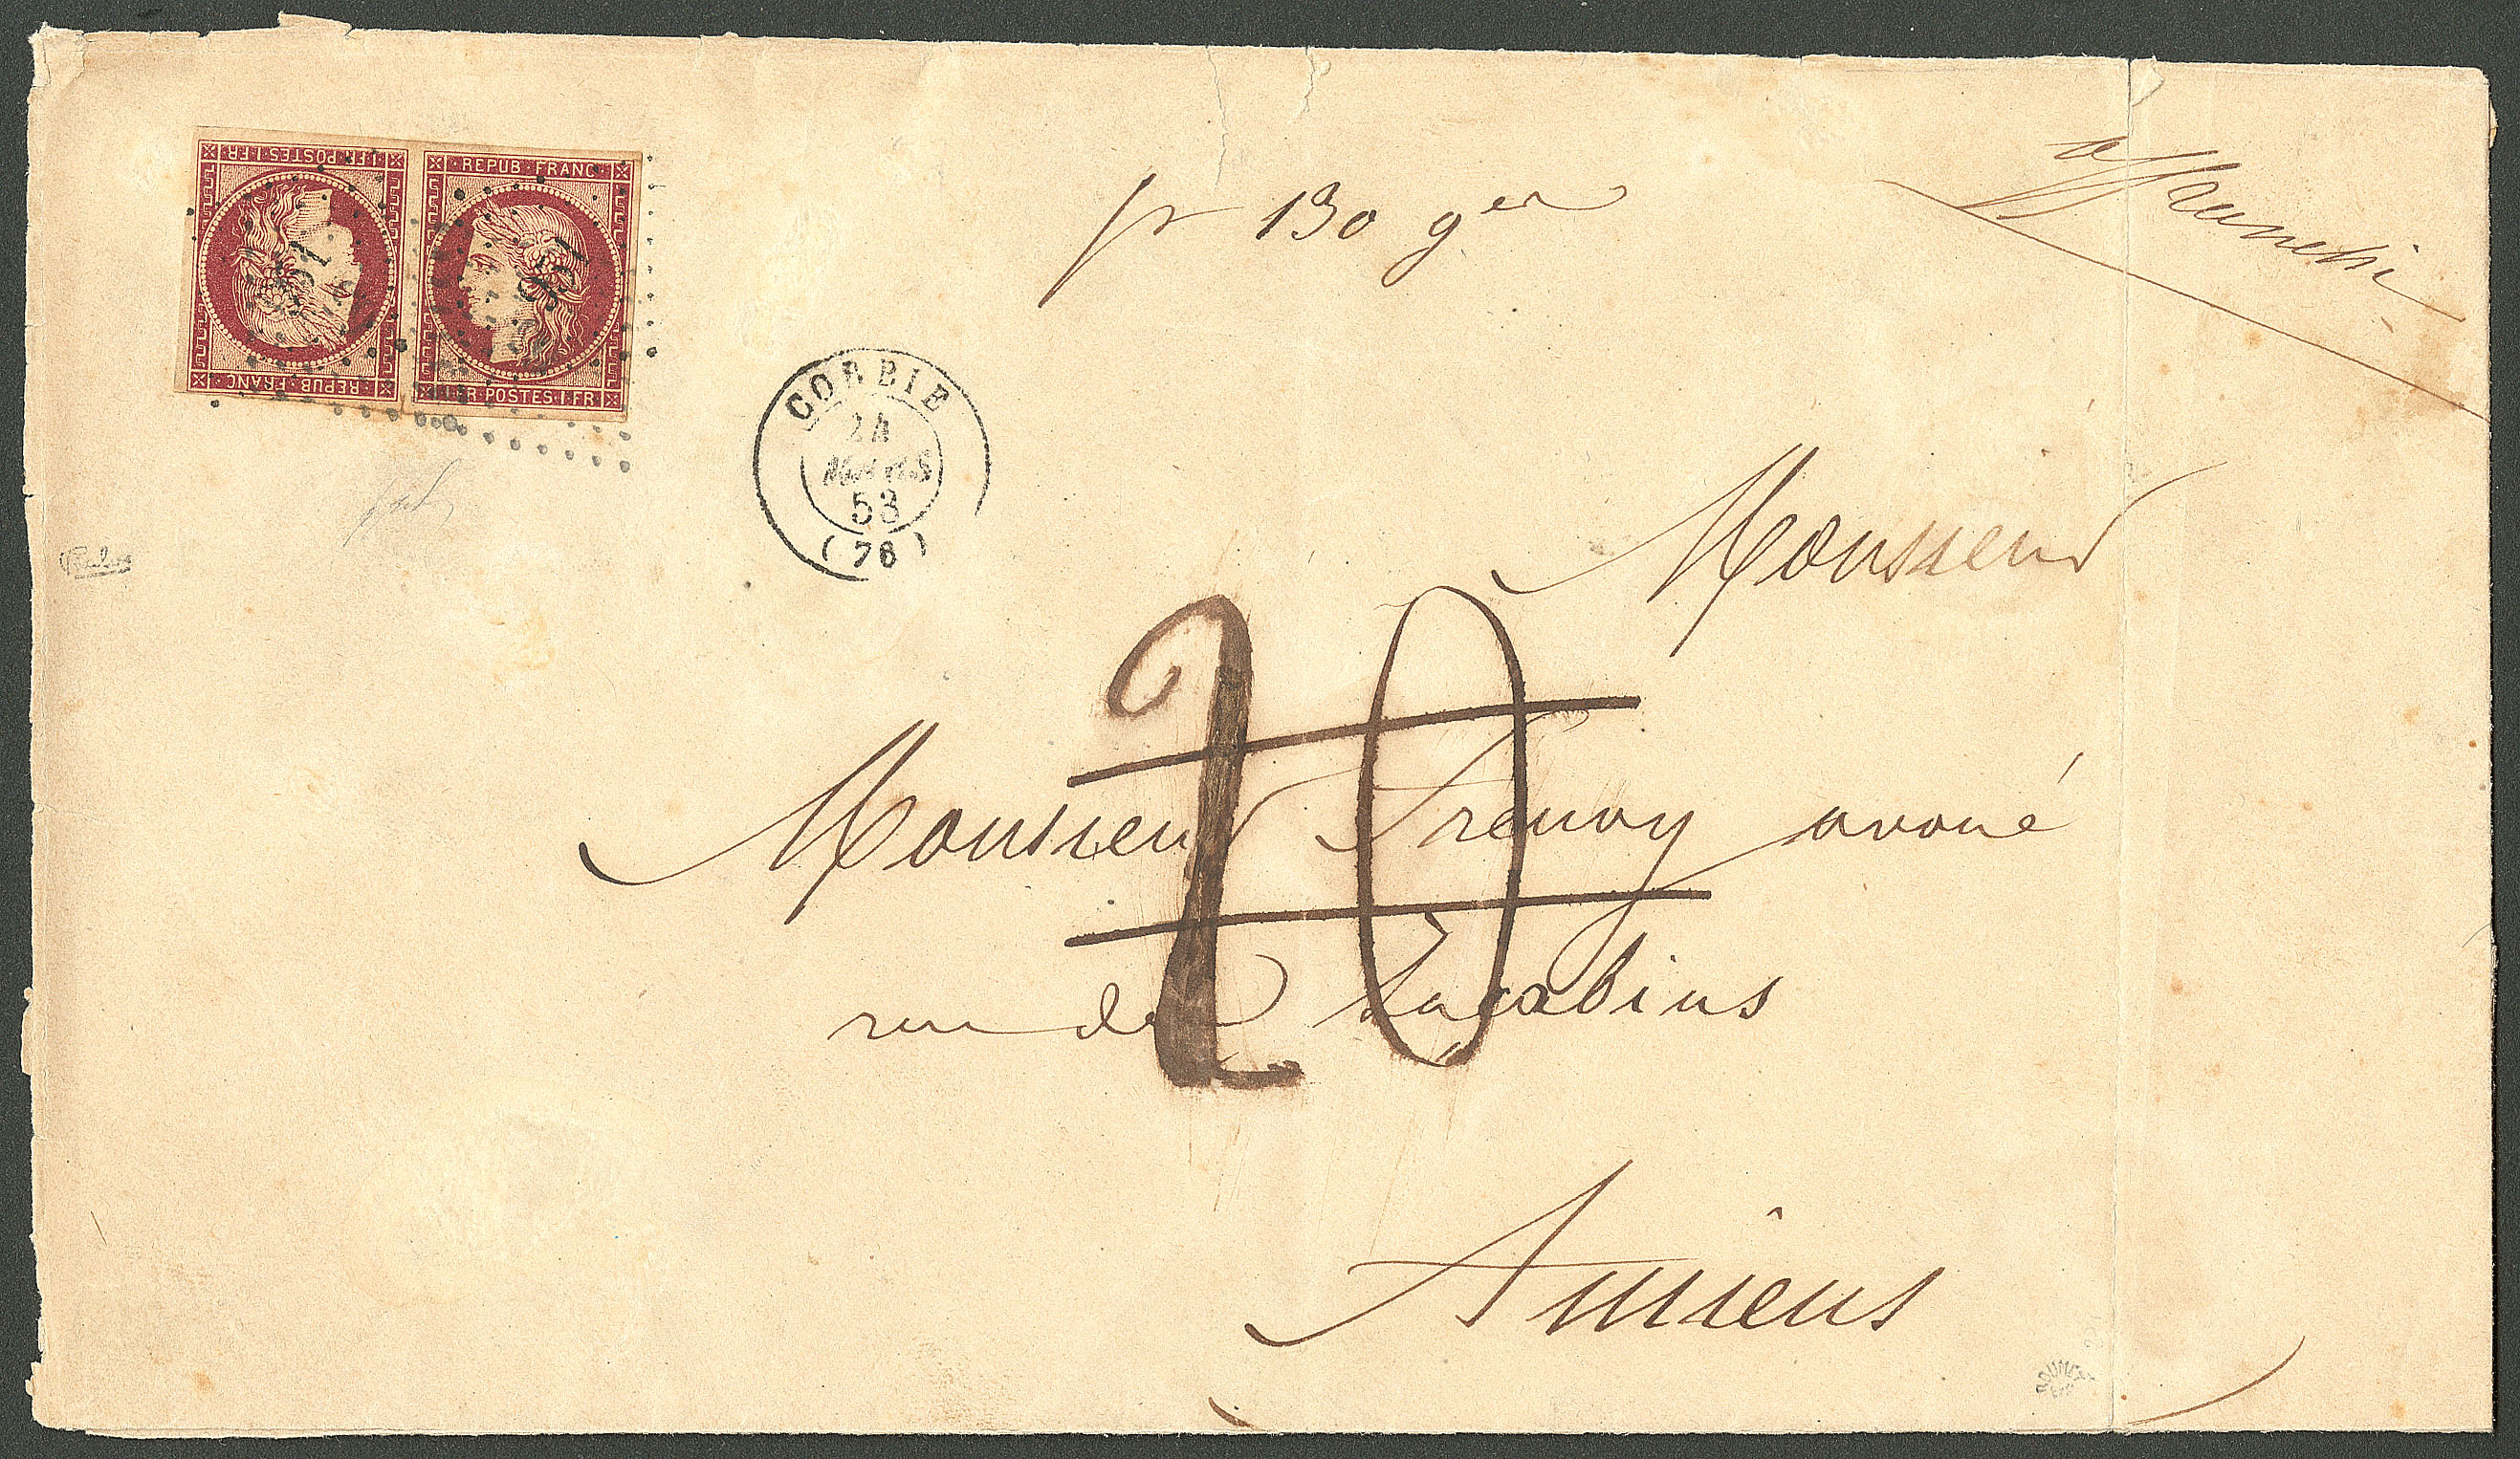 1.FR·POSTES·1.FR
REPUB·FRANC·
·REPUB·FRANC·
1.FR·POSTES·1.FR
951
951
pr 130 ges
affranchi
CORBIE
24
MARS
53
(76)
Monsieur
20
Monsieur avoué
rue des Jacobins
Amiens